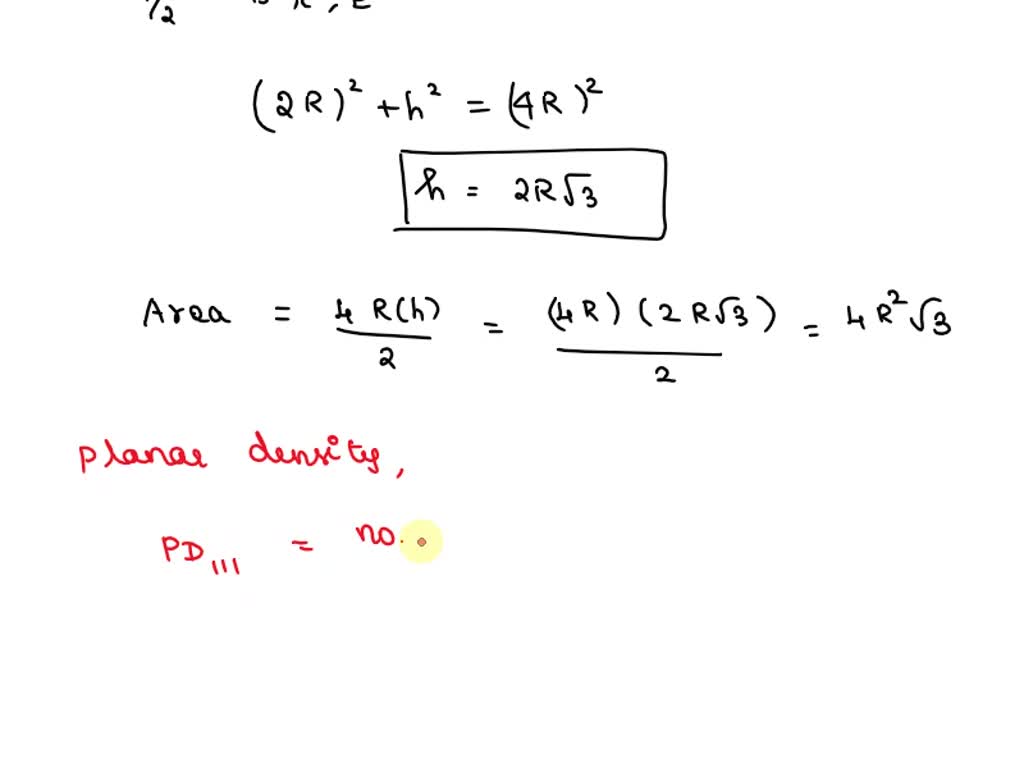 1/2
(2R)² + h² = (4R)²
h = 2R√3
Area = 4 R(h)/2 = (4R)(2R√3)/2 = 4R²√3
Planar density,
PD₁₁₁ = no.